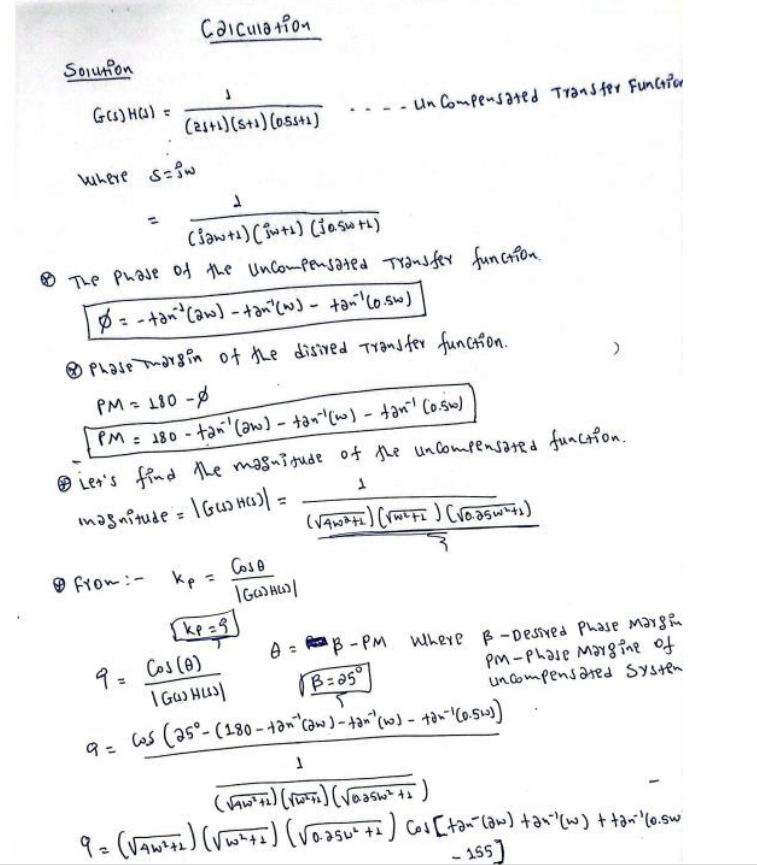 Calculation
Solution
G(s)H(s) = 1 / (2s+1)(s+1)(0.5s+1) .... Uncompensated Transfer Function
Where s=jw
= 1 / (j2w+1)(jw+1)(j0.5w+1)
⊗ The Phase of the Uncompensated Transfer function.
ø = -tan⁻¹(2w) - tan⁻¹(w) - tan⁻¹(0.5w)
⊗ Phase margin of the disired Transfer function.
PM = 180 - ø
PM = 180 - tan⁻¹(2w) - tan⁻¹(w) - tan⁻¹(0.5w)
⊕ Let's find the magnitude of the uncompensated function.
magnitude = |G(s)H(s)| = 1 / (√4w²+1)(√w²+1)(√0.25w²+1)
⊕ from :- kp = Cosθ / |G(s)H(s)|
kp = 9
9 = Cos(θ) / |G(s)H(s)| θ = β - PM where β - Desired Phase Margin
β = 25° PM - Phase Margine of uncompensated System
9 = cos(25° - (180 - tan⁻¹(2w) - tan⁻¹(w) - tan⁻¹(0.5w))
1 / (√4w²+1)(√w²+1)(√0.25w²+1)
9 = (√4w²+1)(√w²+1)(√0.25w²+1) Cos[tan⁻(2w) + tan⁻¹(w) + tan⁻¹(0.5w
- 155]